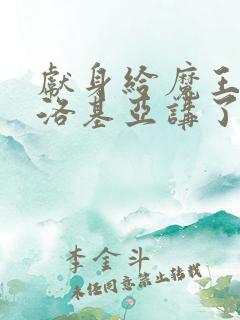 獻身給魔王
洛基亞講了
李金斗
未經同意禁止轉載